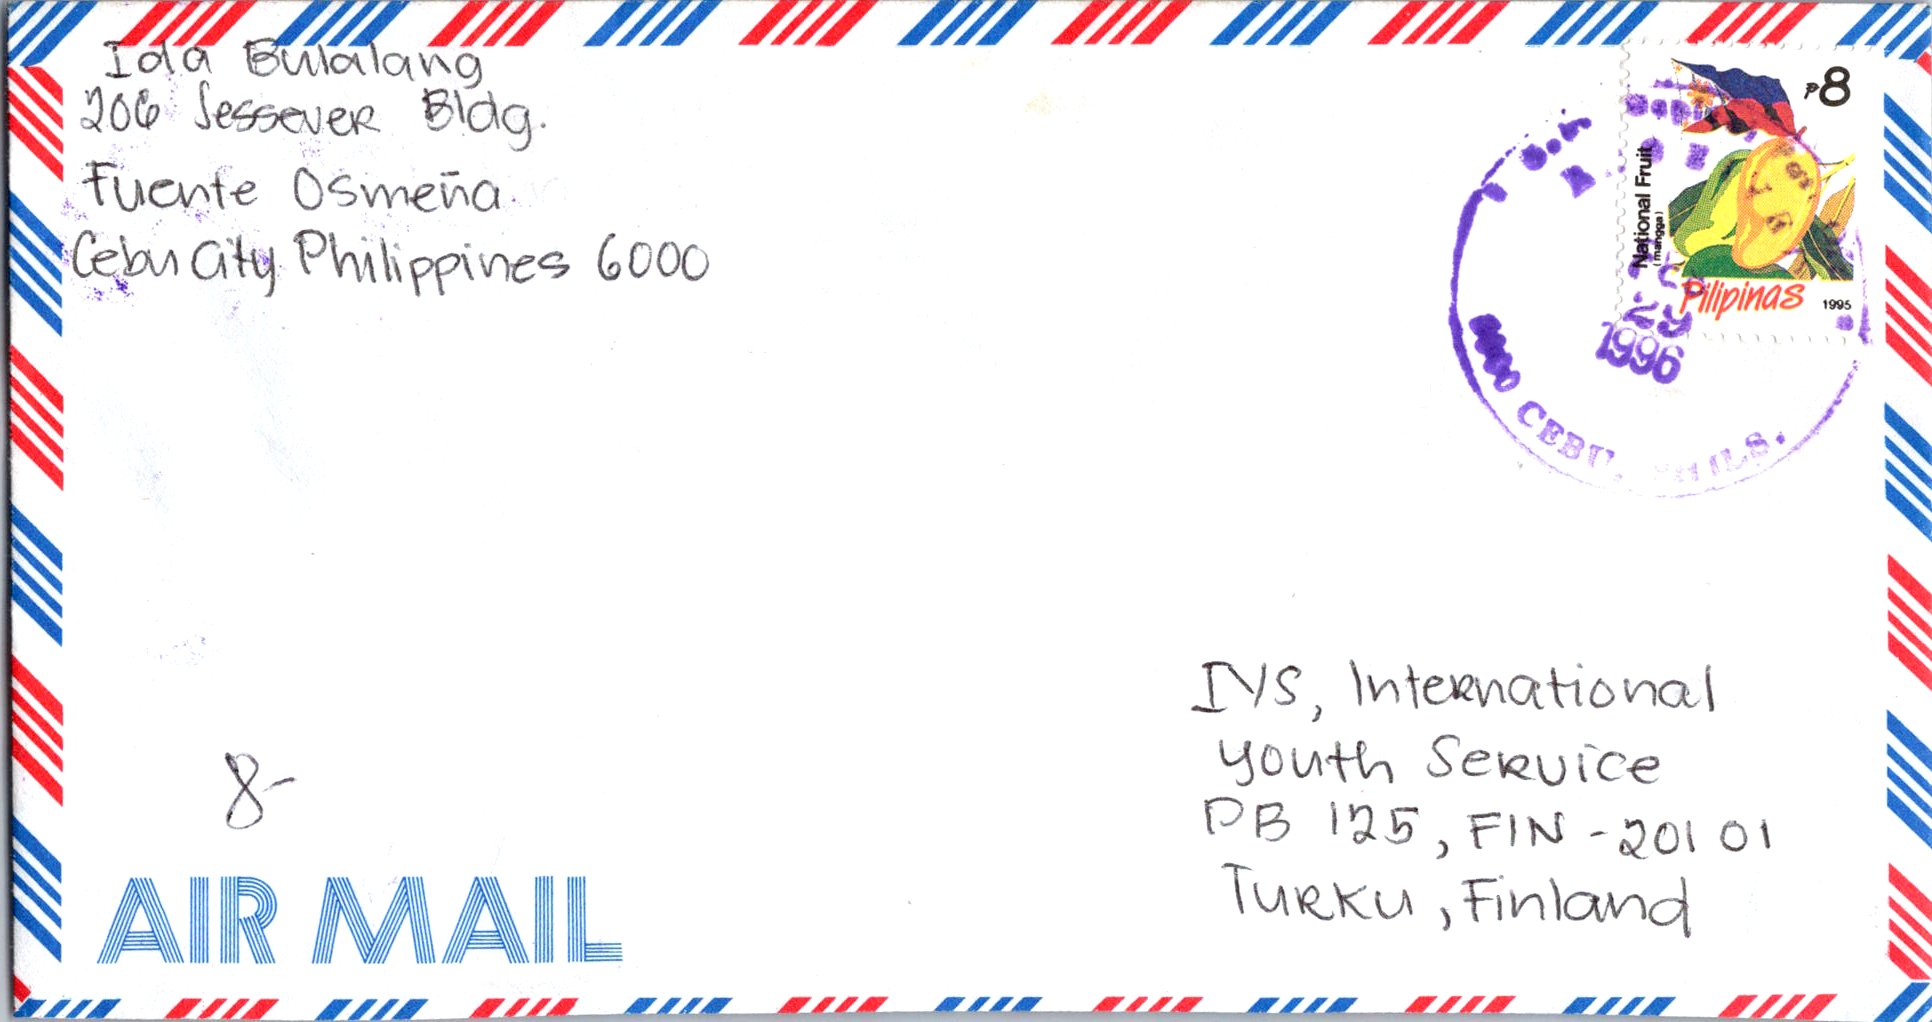 Ida Bulalang
206 Jessever Bldg.
Fuente Osmeña
Cebu City Philippines 6000
₱8
National Fruit
(mangga)
Pilipinas
1995
29
1996
CEBU, PHILS.
IYS, International
Youth Service
PB 125, FIN - 20101
Turku, Finland
8-
AIR MAIL